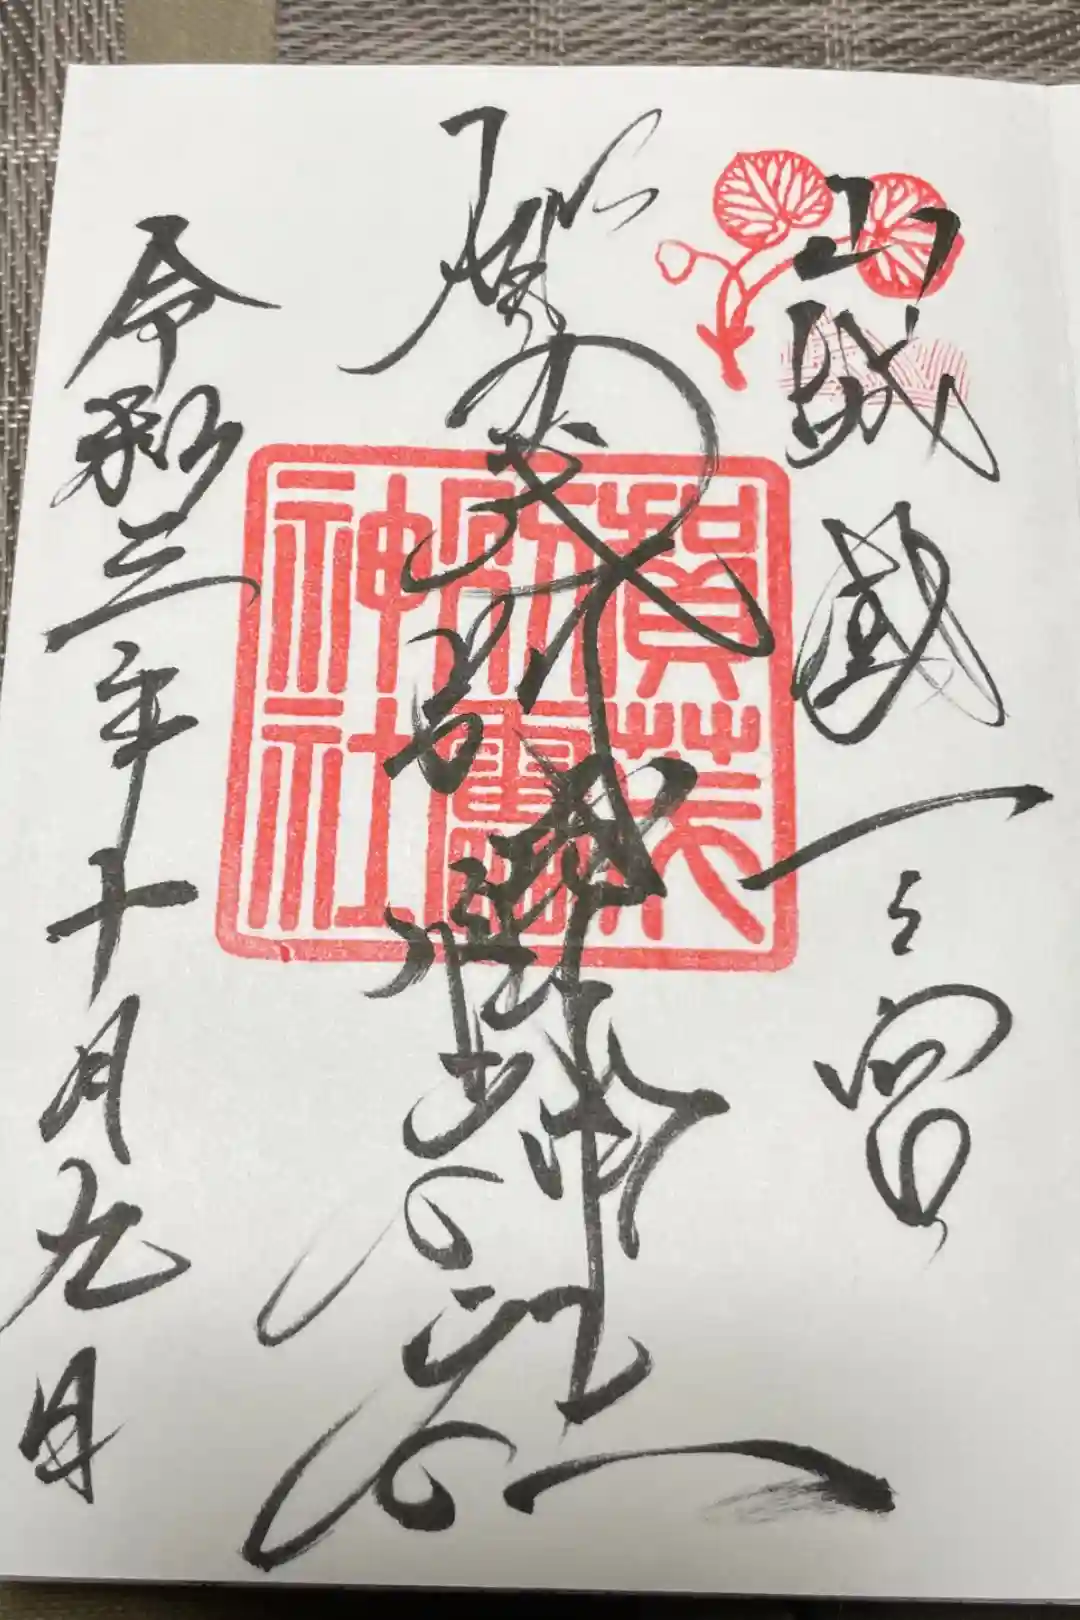 山城國一之宮
賀茂別雷神社
令和三年十月九日
賀茂
別雷
神社